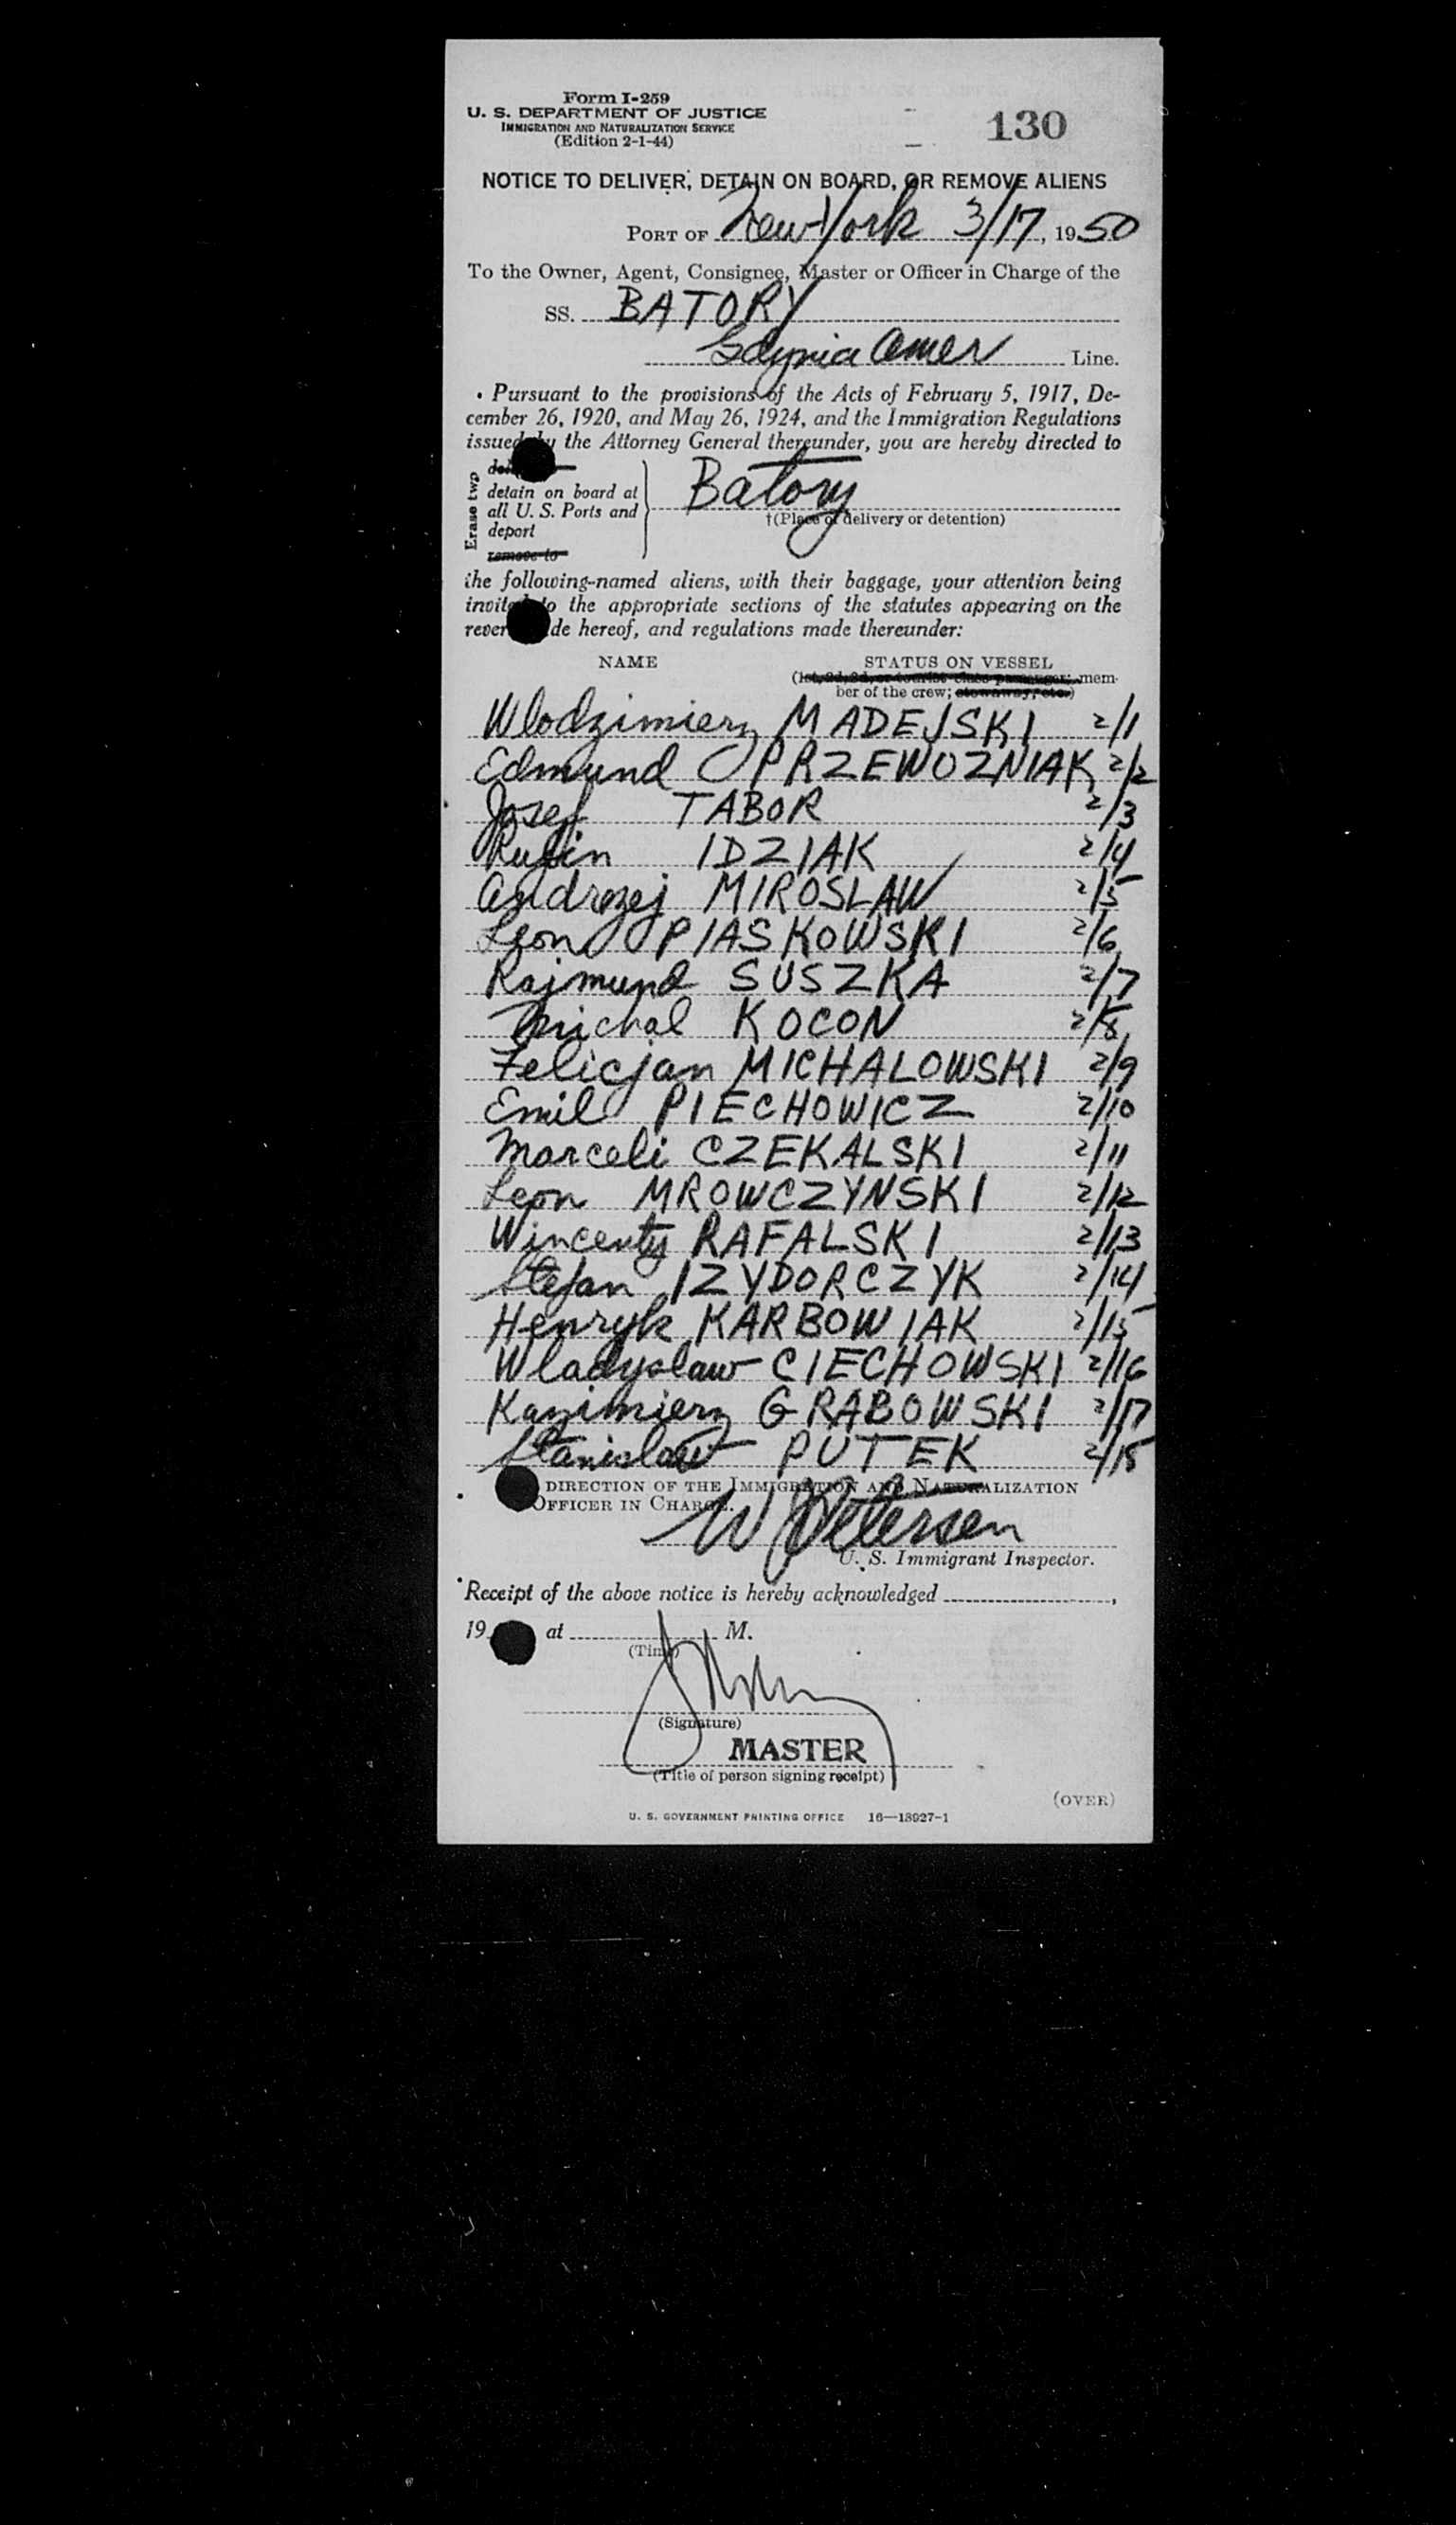 Form I-259
U. S. DEPARTMENT OF JUSTICE
IMMIGRATION AND NATURALIZATION SERVICE
(Edition 2-1-44)
130
NOTICE TO DELIVER, DETAIN ON BOARD, OR REMOVE ALIENS
PORT OF New York 3/17, 1950
To the Owner, Agent, Consignee, Master or Officer in Charge of the
SS. BATORY
Gdynia Amer Line.
Pursuant to the provisions of the Acts of February 5, 1917, De-
cember 26, 1920, and May 26, 1924, and the Immigration Regulations
issued by the Attorney General thereunder, you are hereby directed to
Erase two
detain on board at
all U. S. Ports and
deport
remove to
Batory
†(Place of delivery or detention)
the following-named aliens, with their baggage, your attention being
invited to the appropriate sections of the statutes appearing on the
rever de hereof, and regulations made thereunder:
NAME STATUS ON VESSEL
(1st, 2d, 3d, or tourist class passenger; mem-
ber of the crew; stowaway, etc.)
Wlodzimierz MADEJSKI 2/1
Edmund PRZEWOZNIAK 2/2
Josef TABOR 2/3
IDZIAK 2/4
Andrzej MIROSLAW 2/5
Leon PIASKOWSKI 2/6
Rajmund SUSZKA 2/7
Michal KOCON 2/8
Felicjan MICHALOWSKI 2/9
Emil PIECHOWICZ 2/10
Marceli CZEKALSKI 2/11
Leon MROWCZYNSKI 2/12
Wincenty RAFALSKI 2/13
Stefan IZYDORCZYK 2/14
Henryk KARBOWIAK 2/15
Wladyslaw CIECHOWSKI 2/16
Kazimierz GRABOWSKI 2/17
Stanislaw PUTEK 2/18
DIRECTION OF THE IMMIGRATION AND NATURALIZATION
OFFICER IN CHARGE.
W Petersen
U. S. Immigrant Inspector.
Receipt of the above notice is hereby acknowledged ,
19 at M.
(Time)
(Signature)
MASTER
(Title of person signing receipt)
(OVER)
U. S. GOVERNMENT PRINTING OFFICE 16—18927-1